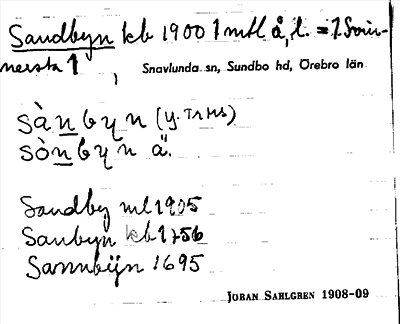 Sandbyn kb 1900 1 mtl å, l. = 1 Svin-
nersta 1,
Snavlunda sn, Sundbo hd, Örebro län
sànbyn (y. Trus)
sònbyn ä.
Sandby ml 1905
Sanbyn kb 1756
Sannbÿn 1695
JÖRAN SAHLGREN 1908-09